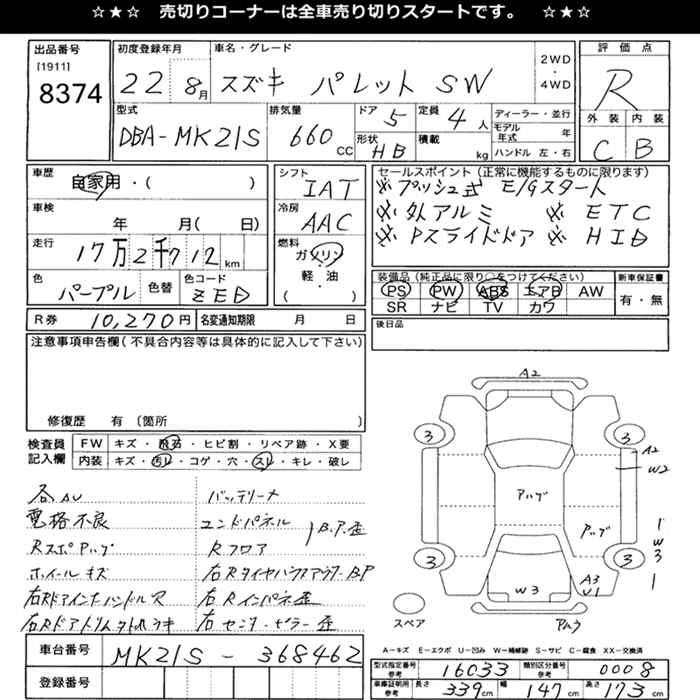 ☆★☆ 売切りコーナーは全車売り切りスタートです。 ☆★☆
出品番号
[1911]
8374
初度登録年月
22 8月
車名・グレード
スズキ パレット SW
2WD
・
4WD
評価点
R
外装 内装
C B
型式
DBA-MK21S
排気量
660 CC
ドア 5
形状 HB
定員 4人
積載 kg
ディーラー・並行
モデル年式 年
ハンドル 左・右
車歴
自家用・( )
車検
年 月( 日)
走行
17万2千712km
色
パープル
色替
色コード
ZED
シフト
IAT
冷房
AAC
燃料
ガソリン
・
軽・油
( )
セールスポイント(正常に機能するものに限ります)
※プッシュ式 E/Gスタート
※外アルミ ※ETC
※Pスライドドア ※HID
装備品(純正品に限り○をつけてください)
PS PW ABS エアB AW
SR ナビ TV カワ
新車保証書
有・無
R券 10,270円
名変通知期限 月 日
後日品
注意事項申告欄(不具合内容等は具体的に記入して下さい)
修復歴 有 〔箇所
検査員
記入欄
FW キズ・飛石・ヒビ割・リペア跡・X要
内装 キズ・汚レ・コゲ・穴・スレ・キレ・破レ
各AU
電格不良
Rスポアハゲ
ホイールキズ
右Rドアインナハンドル
右Rドアトリム キ
バッテリーナ
エンドパネル
B.P.歪
Rフロア
右RタイヤハウスアウターB.P
右Rインパネ歪
右センターピラー歪
A2
3 3
A2
W2
アハゲ
アハゲ
1
W
3
1
3 3
W3
A3
U1
スペア
アムラ
A-キズ E-エクボ U-凹み W-補修跡 S-サビ C-腐食 XX-交換済
車台番号
MK21S-368462
登録番号
型式指定番号
参考
16033
類別区分番号
参考
0008
車庫証明用
参考
長さ 339cm 幅 147cm 高さ 173cm